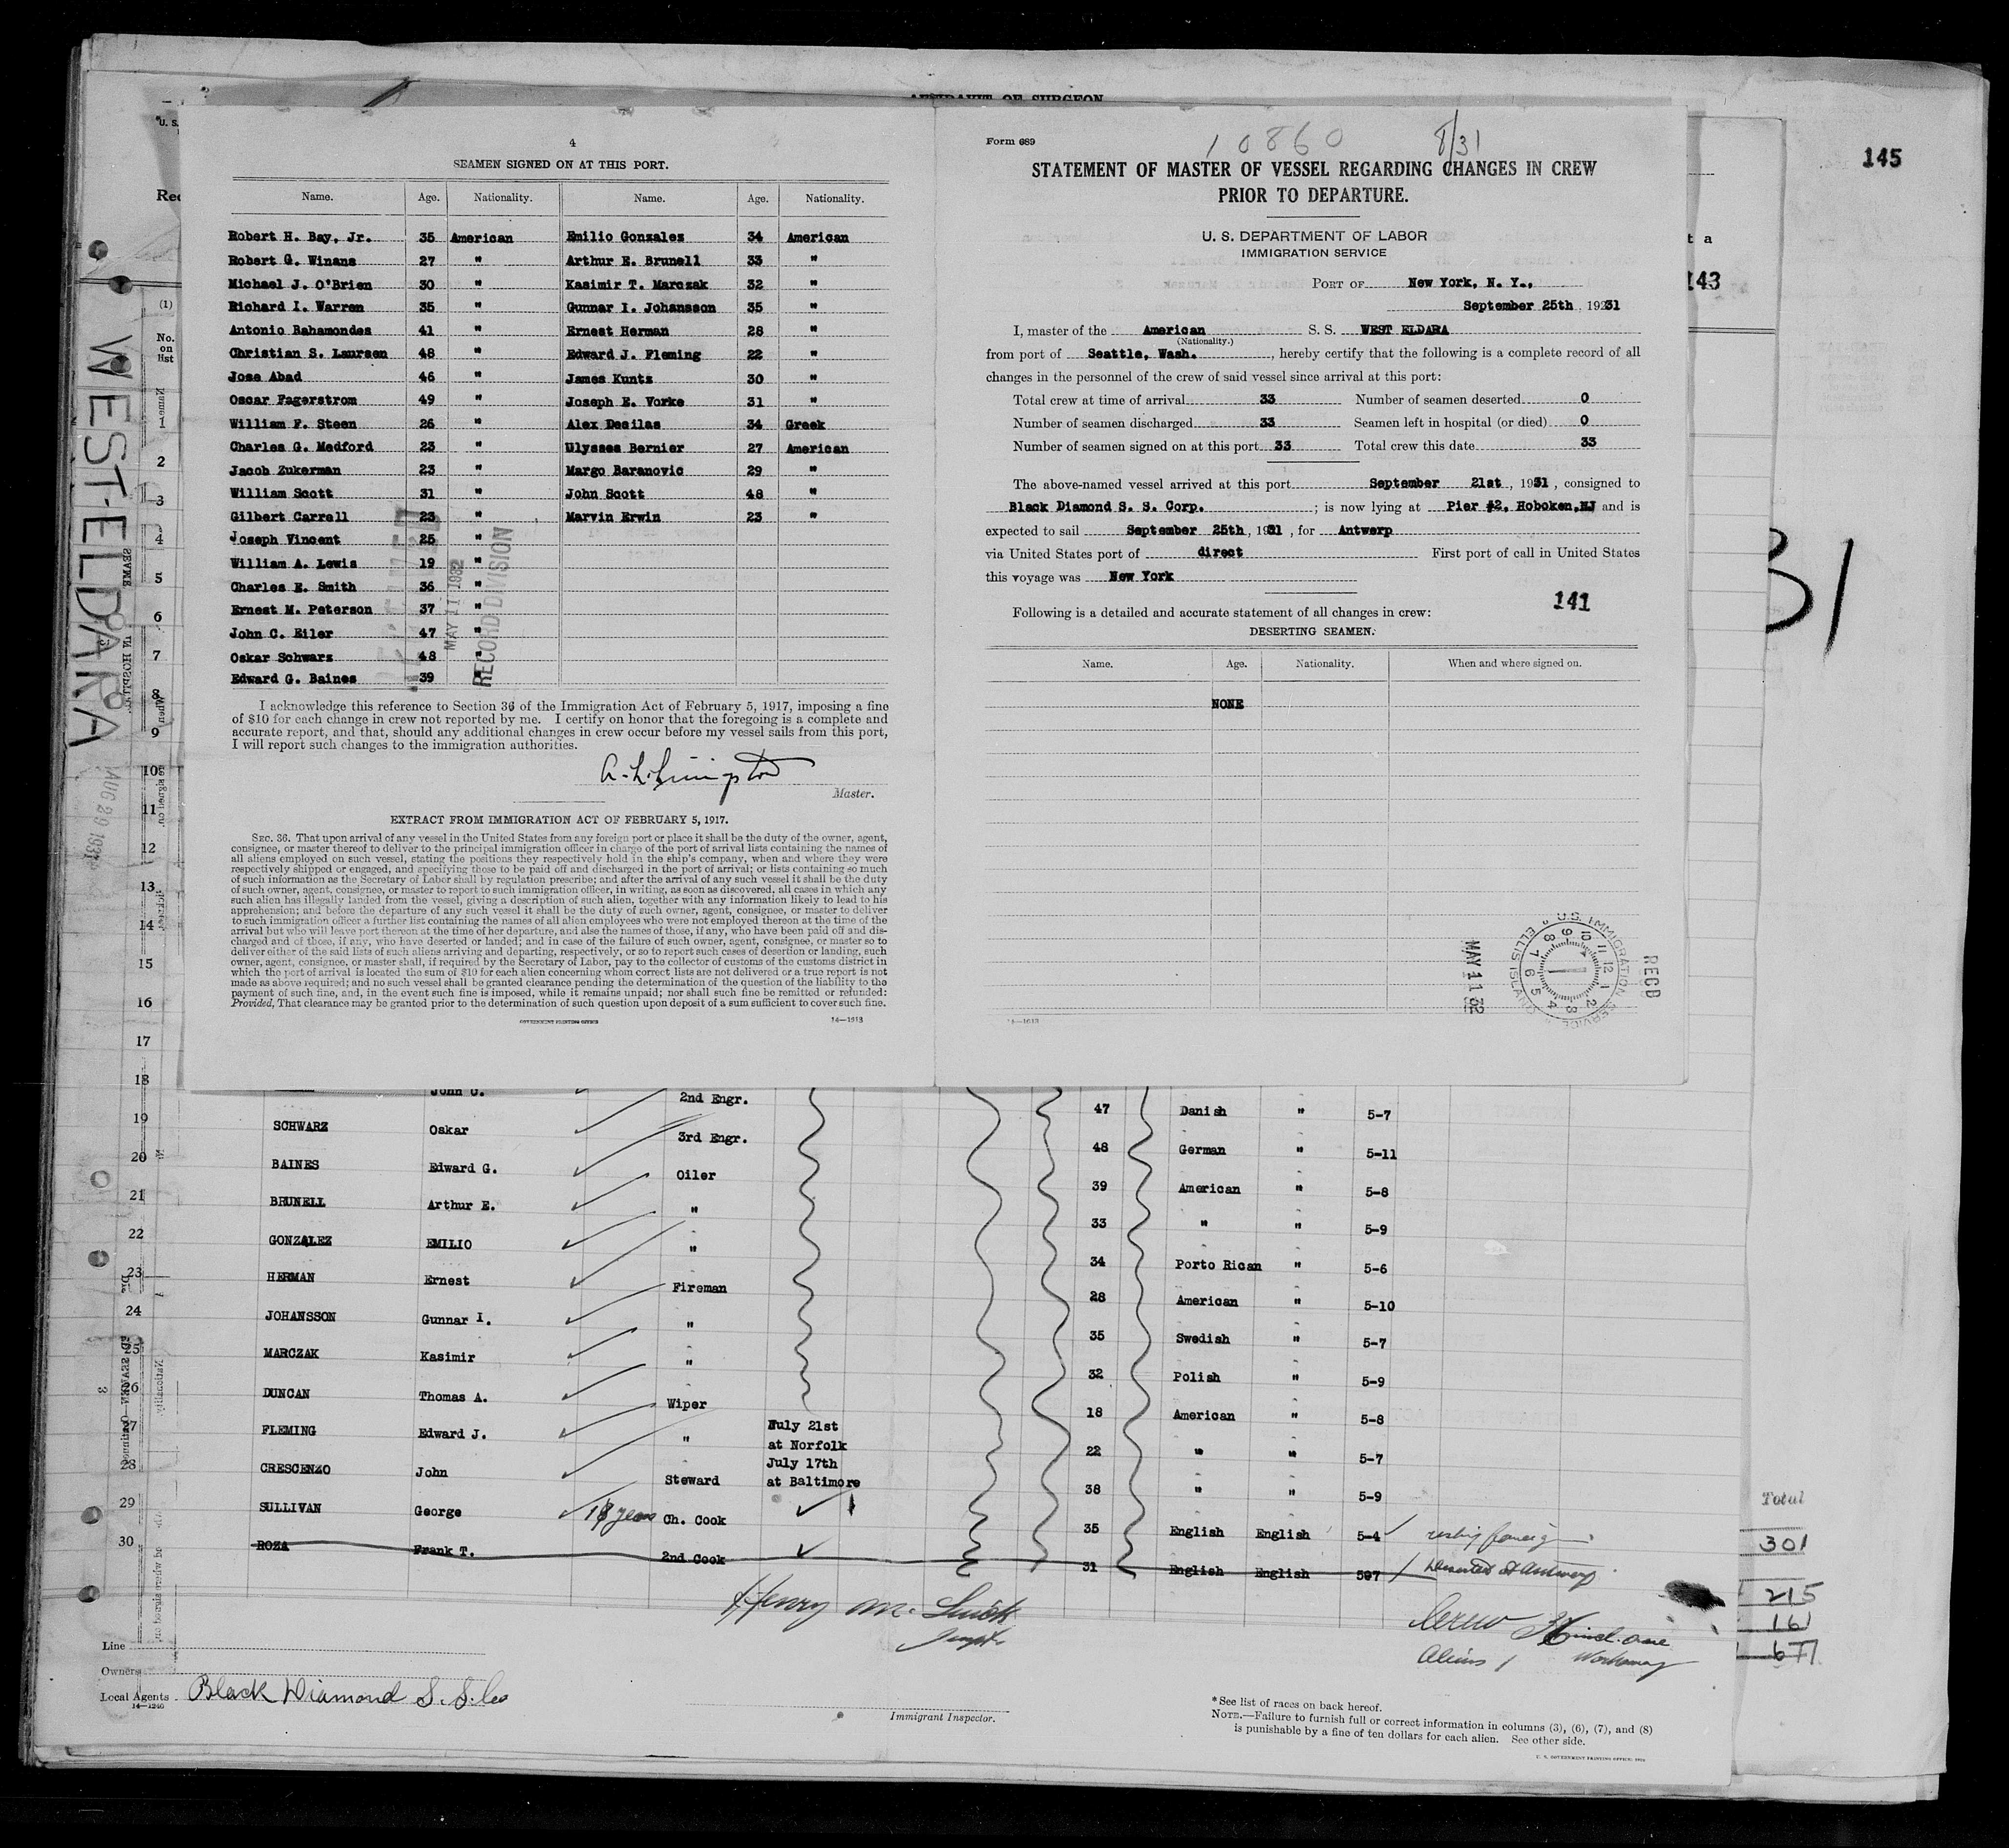 AFFIDAVIT OF SURGEON
145
143
t a
U. S.
Rec
(1)
No.
on
list
WEST-ELDARA
AUG 29 1931
4
SEAMEN SIGNED ON AT THIS PORT.
Name. Age. Nationality. Name. Age. Nationality.
Robert H. Bay, Jr. 35 American Emilio Gonzalez 34 American
Robert G. Winans 27 " Arthur E. Brunell 33 "
Michael J. O'Brien 30 " Kasimir T. Marczak 32 "
Richard I. Warren 35 " Gunnar I. Johansson 35 "
Antonio Bahamondes 41 " Ernest Herman 28 "
Christian S. Laursen 48 " Edward J. Fleming 22 "
Jose Abad 46 " James Kuntz 30 "
Oscar Fagerstrom 49 " Joseph E. Vorke 31 "
William F. Steen 26 " Alex Decilas 34 Greek
Charles G. Medford 23 " Ulysses Bernier 27 American
Jacob Zukerman 23 " Margo Baranovic 29 "
William Scott 31 " John Scott 48 "
Gilbert Carrell 23 " Marvin Erwin 23 "
Joseph Vincent 25 "
William A. Lewis 19 "
Charles E. Smith 36 "
Ernest M. Peterson 37 "
John C. Eiler 47 "
Oskar Schwarz 48 "
Edward G. Baines 39 "
MAY 11 1932
RECORD DIVISION
I acknowledge this reference to Section 36 of the Immigration Act of February 5, 1917, imposing a fine
of $10 for each change in crew not reported by me. I certify on honor that the foregoing is a complete and
accurate report, and that, should any additional changes in crew occur before my vessel sails from this port,
I will report such changes to the immigration authorities.
A. L. Livingston
Master.
EXTRACT FROM IMMIGRATION ACT OF FEBRUARY 5, 1917.
SEC. 36. That upon arrival of any vessel in the United States from any foreign port or place it shall be the duty of the owner, agent,
consignee, or master thereof to deliver to the principal immigration officer in charge of the port of arrival lists containing the names of
all aliens employed on such vessel, stating the positions they respectively hold in the ship's company, when and where they were
respectively shipped or engaged, and specifying those to be paid off and discharged in the port of arrival; or lists containing so much
of such information as the Secretary of Labor shall by regulation prescribe; and after the arrival of any such vessel it shall be the duty
of such owner, agent, consignee, or master to report to such immigration officer, in writing, as soon as discovered, all cases in which any
such alien has illegally landed from the vessel, giving a description of such alien, together with any information likely to lead to his
apprehension; and before the departure of any such vessel it shall be the duty of such owner, agent, consignee, or master to deliver
to such immigration officer a further list containing the names of all alien employees who were not employed thereon at the time of the
arrival but who will leave port thereon at the time of her departure, and also the names of those, if any, who have been paid off and dis-
charged and of those, if any, who have deserted or landed; and in case of the failure of such owner, agent, consignee, or master so to
deliver either of the said lists of such aliens arriving and departing, respectively, or so to report such cases of desertion or landing, such
owner, agent, consignee, or master shall, if required by the Secretary of Labor, pay to the collector of customs of the customs district in
which the port of arrival is located the sum of $10 for each alien concerning whom correct lists are not delivered or a true report is not
made as above required; and no such vessel shall be granted clearance pending the determination of the question of the liability to the
payment of such fine, and, in the event such fine is imposed, while it remains unpaid; nor shall such fine be remitted or refunded:
Provided, That clearance may be granted prior to the determination of such question upon deposit of a sum sufficient to cover such fine.
GOVERNMENT PRINTING OFFICE 14—1913
Form 689
10860 8/31
STATEMENT OF MASTER OF VESSEL REGARDING CHANGES IN CREW
PRIOR TO DEPARTURE.
U. S. DEPARTMENT OF LABOR
IMMIGRATION SERVICE
PORT OF New York, N. Y.,
September 25th, 1931
I, master of the American S. S. WEST ELDARA
(Nationality.)
from port of Seattle, Wash., hereby certify that the following is a complete record of all
changes in the personnel of the crew of said vessel since arrival at this port:
Total crew at time of arrival 33 Number of seamen deserted 0
Number of seamen discharged 33 Seamen left in hospital (or died) 0
Number of seamen signed on at this port 33 Total crew this date 33
The above-named vessel arrived at this port September 21st, 1931, consigned to
Black Diamond S. S. Corp.; is now lying at Pier #2, Hoboken, NJ and is
expected to sail September 25th, 1931, for Antwerp
via United States port of direct First port of call in United States
this voyage was New York
141
Following is a detailed and accurate statement of all changes in crew:
DESERTING SEAMEN.
Name. Age. Nationality. When and where signed on.
NONE
U.S. IMMIGRATION SERVICE ELLIS ISLAND
RECD
MAY 11 32
31
1
2
3
4
5
6
7
8
9
10
11
12
13
14
15
16
17
18 John C. 2nd Engr. 47 Danish " 5-7
19 SCHWARZ Oskar 3rd Engr. 48 German " 5-11
20 BAINES Edward G. Oiler 39 American " 5-8
21 BRUNELL Arthur E. " 33 " " 5-9
22 GONZALEZ EMILIO " 34 Porto Rican " 5-6
23 HERMAN Ernest Fireman 28 American " 5-10
24 JOHANSSON Gunnar I. " 35 Swedish " 5-7
25 MARCZAK Kasimir " 32 Polish " 5-9
26 DUNCAN Thomas A. Wiper 18 American " 5-8
27 FLEMING Edward J. " July 21st at Norfolk 22 " " 5-7
28 CRESCENZO John Steward July 17th at Baltimore 38 " " 5-9
29 SULLIVAN George 18 years Ch. Cook 35 English English 5-4
30 ROZA Frank T. 2nd Cook 31 English English 507 Deserted at Antwerp
Total
301
215
161
677
Crew incl. one
Aliens 1 Workaway
Line
Owners
Local Agents Black Diamond S. S. Co
14—1240
Immigrant Inspector.
*See list of races on back hereof.
NOTE.—Failure to furnish full or correct information in columns (3), (6), (7), and (8)
is punishable by a fine of ten dollars for each alien. See other side.